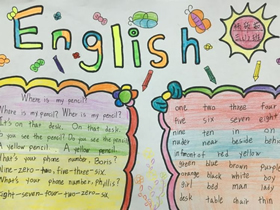 English
Where is my pencil?
Where is my pencil? Where is my pencil?
It's on that desk. On that desk.
Do you see the pencil? Do you see the pencil?
A yellow pencil. A yellow pencil.
What's your phone number, Boris?
Nine-zero-two, five-three-six.
What's your phone number, Phyllis?
Eight-seven-four-two-zero-six.
one two three four
five six seven eight
nine ten in on
under near beside behind
in front of red yellow
green blue brown purple
orange black white boy
girl old man lady
desk table chair this